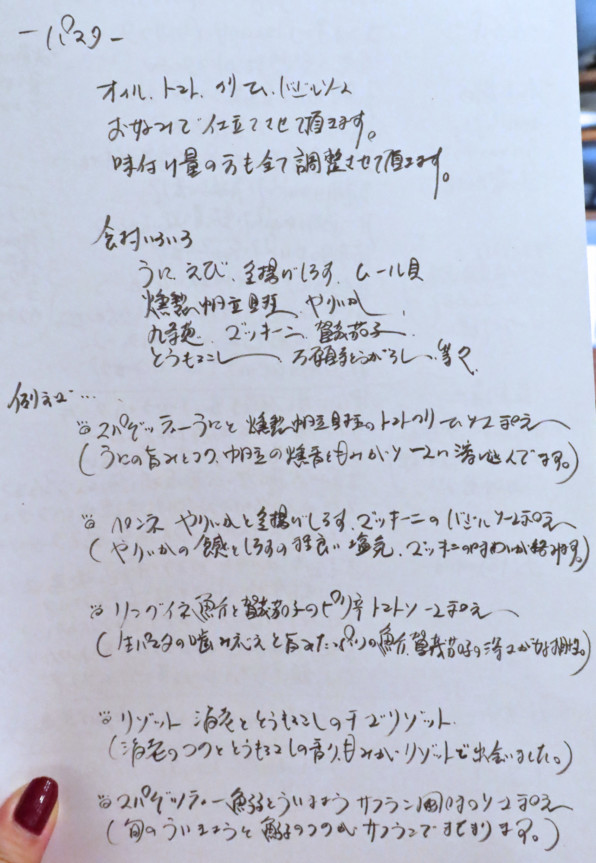 ーパスター
オイル、トマト、クリーム、バジルソース
お好みで仕立てさせて頂きます。
味付け量の方も全て調整させて頂きます。
食材いろいろ
うに、えび、釜揚げしらす、ムール貝
燻製帆立貝柱、やりいか
九条葱、ズッキーニ、賀茂茄子
とうもろこし、万願寺とうがらし、等々
例えば…
スパゲッティー うにと燻製帆立貝柱のトマトクリームソース
(うにの旨みとコク、帆立の燻香と甘みがソースに溶け込んでます。)
ペンネ やりいかと釜揚げしらす、ズッキーニのバジルソース
(やりいかの食感としらすの程良い塩気、ズッキーニの甘みが絡みます。)
リングイネ 魚介と賀茂茄子のピリ辛トマトソース
(生パスタの噛みごたえと旨みたっぷりの魚介、賀茂茄子の
リゾット 海老ととうもろこしのチーズリゾット
(海老のコクととうもろこしの香り、甘みがリゾットで出会いました。)
スパゲッティー 魚介とういきょう サフラン風味のソース
(旬のういきょうと魚介のコクがサフランで